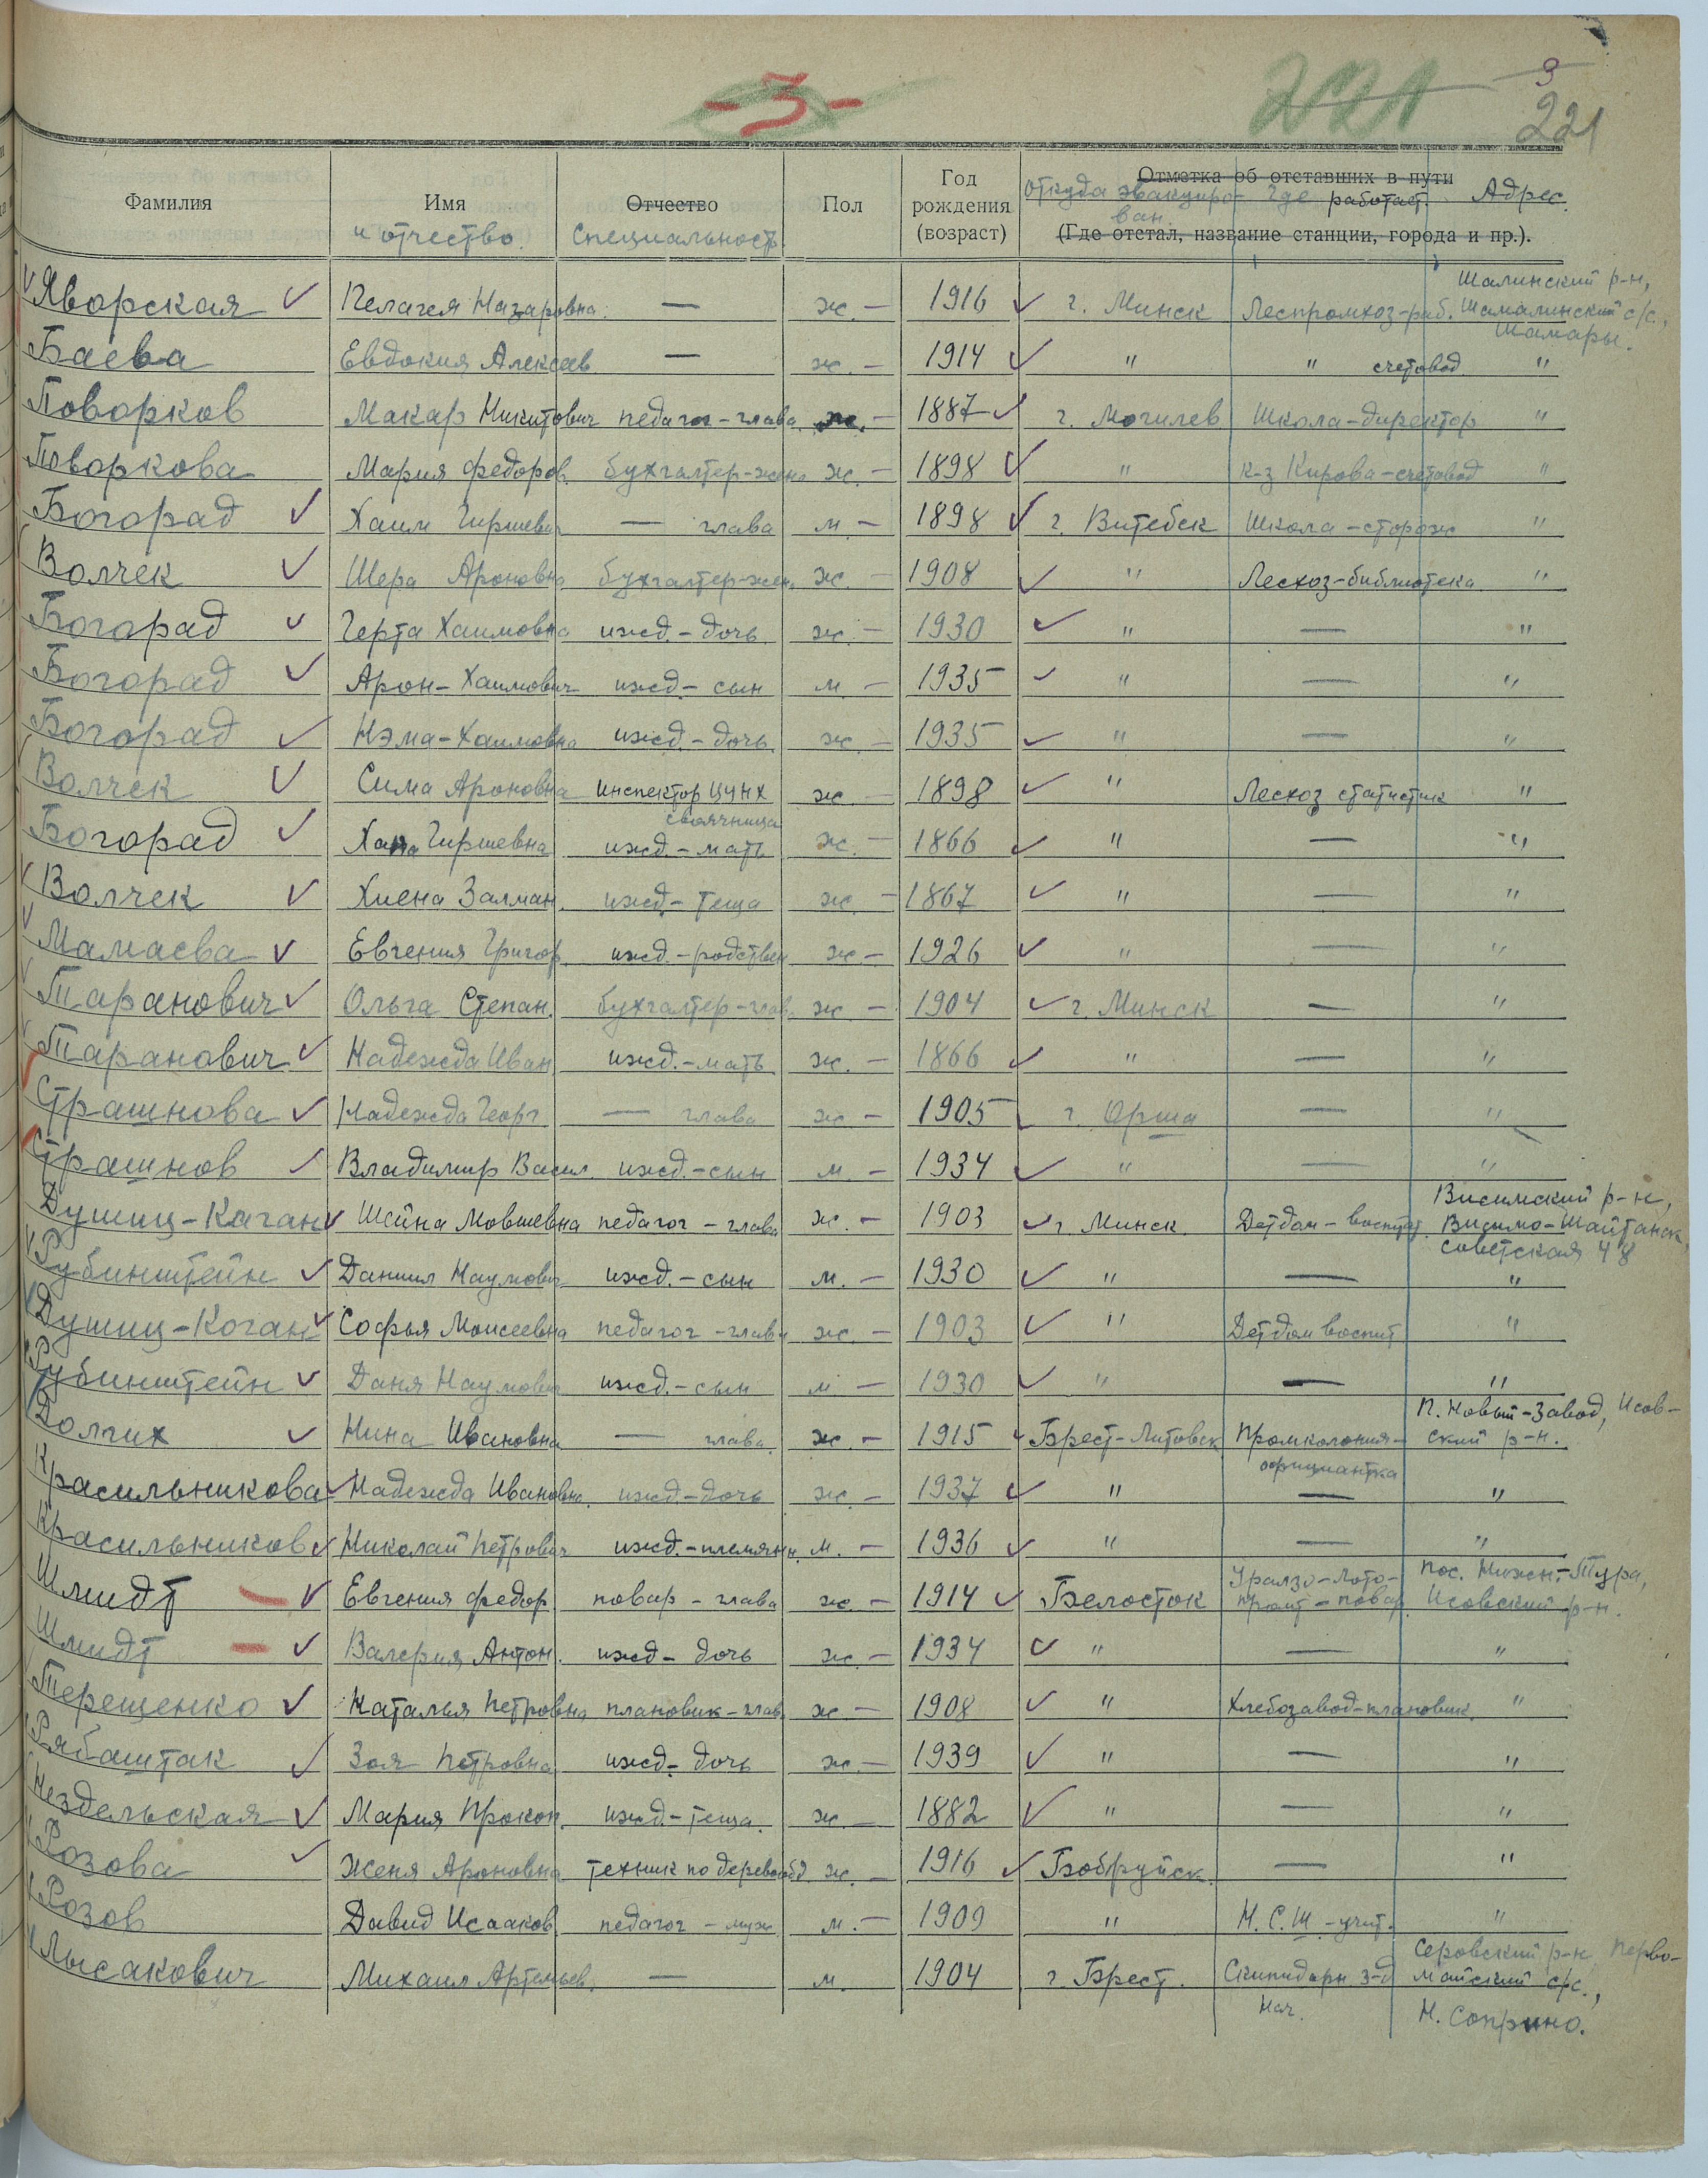 - 3 -
221
3
221
Фамилия Имя Отчество Пол Год рождения (возраст) Отметка об отставших в пути
и отчество. Специальность. Откуда эвакуирован. Где работает. Адрес.
(Где отстал, название станции, города и пр.).
Яворская Пелагея Назаровна. — ж. — 1916 г. Минск Леспромхоз-раб. Шалинский р-н, Шамалинский с/с., Шамары.
Баева Евдокия Алексеев — ж. — 1914 " " счетовод "
Поворков Макар Никитович педагог-глава. ж. — 1887 г. Могилев Школа-директор "
Поворкова Мария Федоров. бухгалтер-жена ж. — 1898 " к-з Кирова-счетовод "
Богорад Хаим Гиршевич — глава м — 1898 г. Витебск Школа-сторож "
Волчек Шера Ароновна бухгалтер-жен. ж. — 1908 " Лесхоз-библиотека "
Богорад Герта Хаимовна ижд.-дочь ж. — 1930 " — "
Богорад Арон-Хаимович ижд.-сын м. — 1935 " — "
Богорад Нэма-Хаимовна ижд.-дочь ж. — 1935 " — "
Волчек Сима Ароновна инспектор ЦУНХ свояченица ж — 1898 " Лесхоз статистик "
Богорад Хана Гиршевна ижд.-мать ж. — 1866 " — "
Волчек Хиена Залман. ижд-теща ж. — 1867 " — "
Мамаева Евгения Григор. ижд.-родствен ж — 1926 " — "
Таранович Ольга Степан. бухгалтер-глав. ж — 1904 г. Минск — "
Таранович Надежда Иван ижд.-мать ж. — 1866 " — "
Страшнова Надежда Георг. — глава ж — 1905 г. Орша — "
Страшнов Владимир Васил. ижд.-сын м — 1934 " — "
Душиц-Каган Шейна Мовшевна педагог-глава ж. — 1903 г. Минск Детдом-воспитат. Висимский р-н, Висимо-Шайтанск, советская 48
Рубинштейн Даниил Наумович ижд.-сын м. — 1930 " — "
Душиц-Коган Софья Моисеевна педагог-глава ж. — 1903 " Детдом воспит "
Рубинштейн Даня Наумович ижд.-сын м — 1930 " — "
Долгих Нина Ивановна — глава. ж — 1915 Брест-Литовск Промколония-официантка П. Новый-Завод, Исовский р-н.
Красильникова Надежда Ивановна. ижд-дочь ж. — 1937 " — "
Красильников Николай Петрович ижд.-племянн. м. — 1936 " — "
Шмидт Евгения Федор. повар-глава ж. — 1914 Белосток повар. Пос. Нижн.-Тура, Исовский р-н.
Шмидт Валерия Антон. ижд-дочь ж. — 1934 " — "
Терещенко Наталья Петровна плановик-глав. ж — 1908 " Хлебозавод-плановик. "
Рябаштак Зоя Петровна ижд.-дочь ж — 1939 " — "
Нездельская Мария Прокоп. ижд-теща. ж. — 1882 " — "
Розова Женя Ароновна техник по деревообд ж. — 1916 Бобруйск. — "
Розов Давид Исааков. педагог-муж м. — 1909 " Н.С.Ш-учит. "
Лысакович Михаил Артемьев. — м. 1904 г. Брест. Скипидарн з-д Нач. Серовский р-н, Первомайский с/с., Н. Соприно.